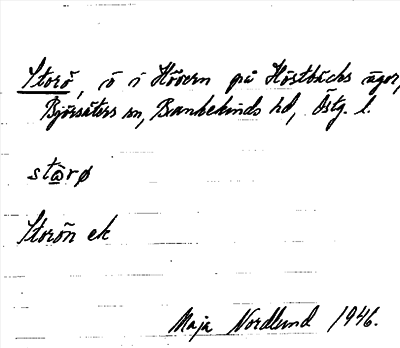 Storö, ö i Hövern på Höstbäcks ägor,
Björsäters sn, Bankekinds hd, Östg. l.
starø
Storön ek
Maja Nordlund 1946.